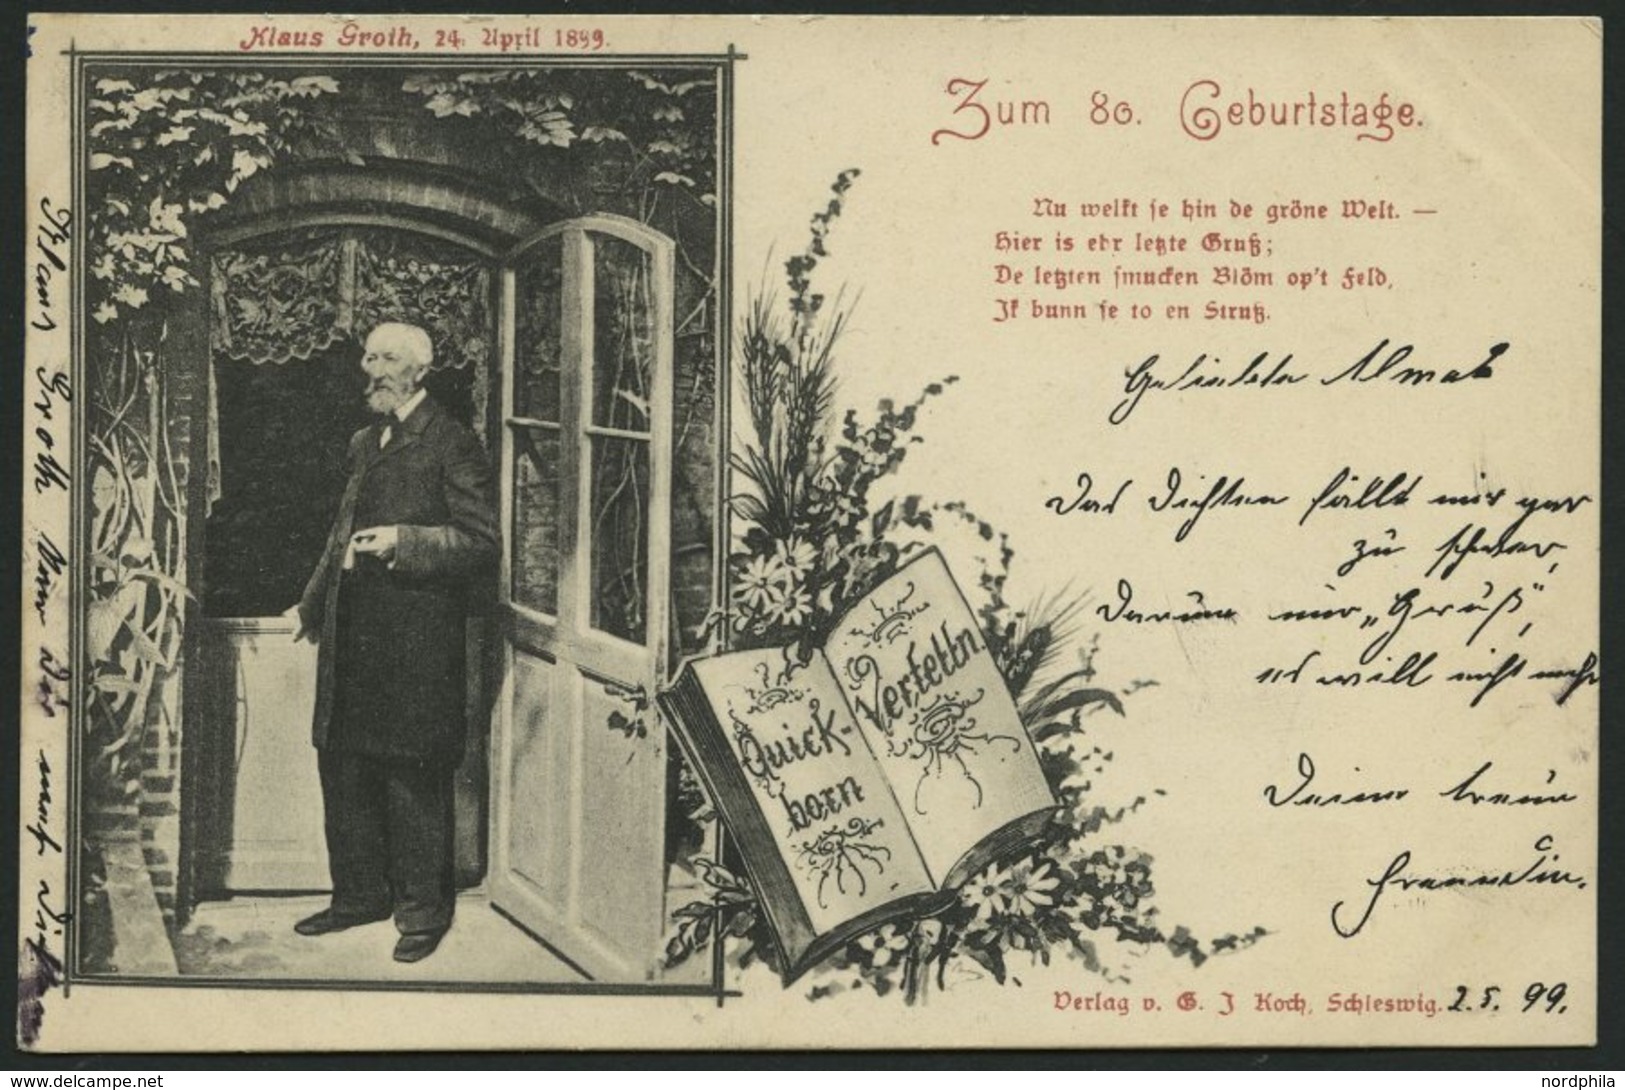 Klaus Groth, 24. April 1899.
Zum 80. Geburtstage.
Nu welkt se hin de gröne Welt. —
Hier is ehr letzte Gruß;
De letzten smucken Blöm op't Feld,
Ik bunn se to en Strutz.
Geliebte Alma!
Das Dichten fällt mir gar
zu schwer,
Darum nur „Gruß“,
es will nicht mehr
Deine treue
Freundin.
Quick-
born
Vertelln.
Klaus Groth
Verlag v. G. J Koch, Schleswig.
2.5.99.
www.delcampe.net
nordphila